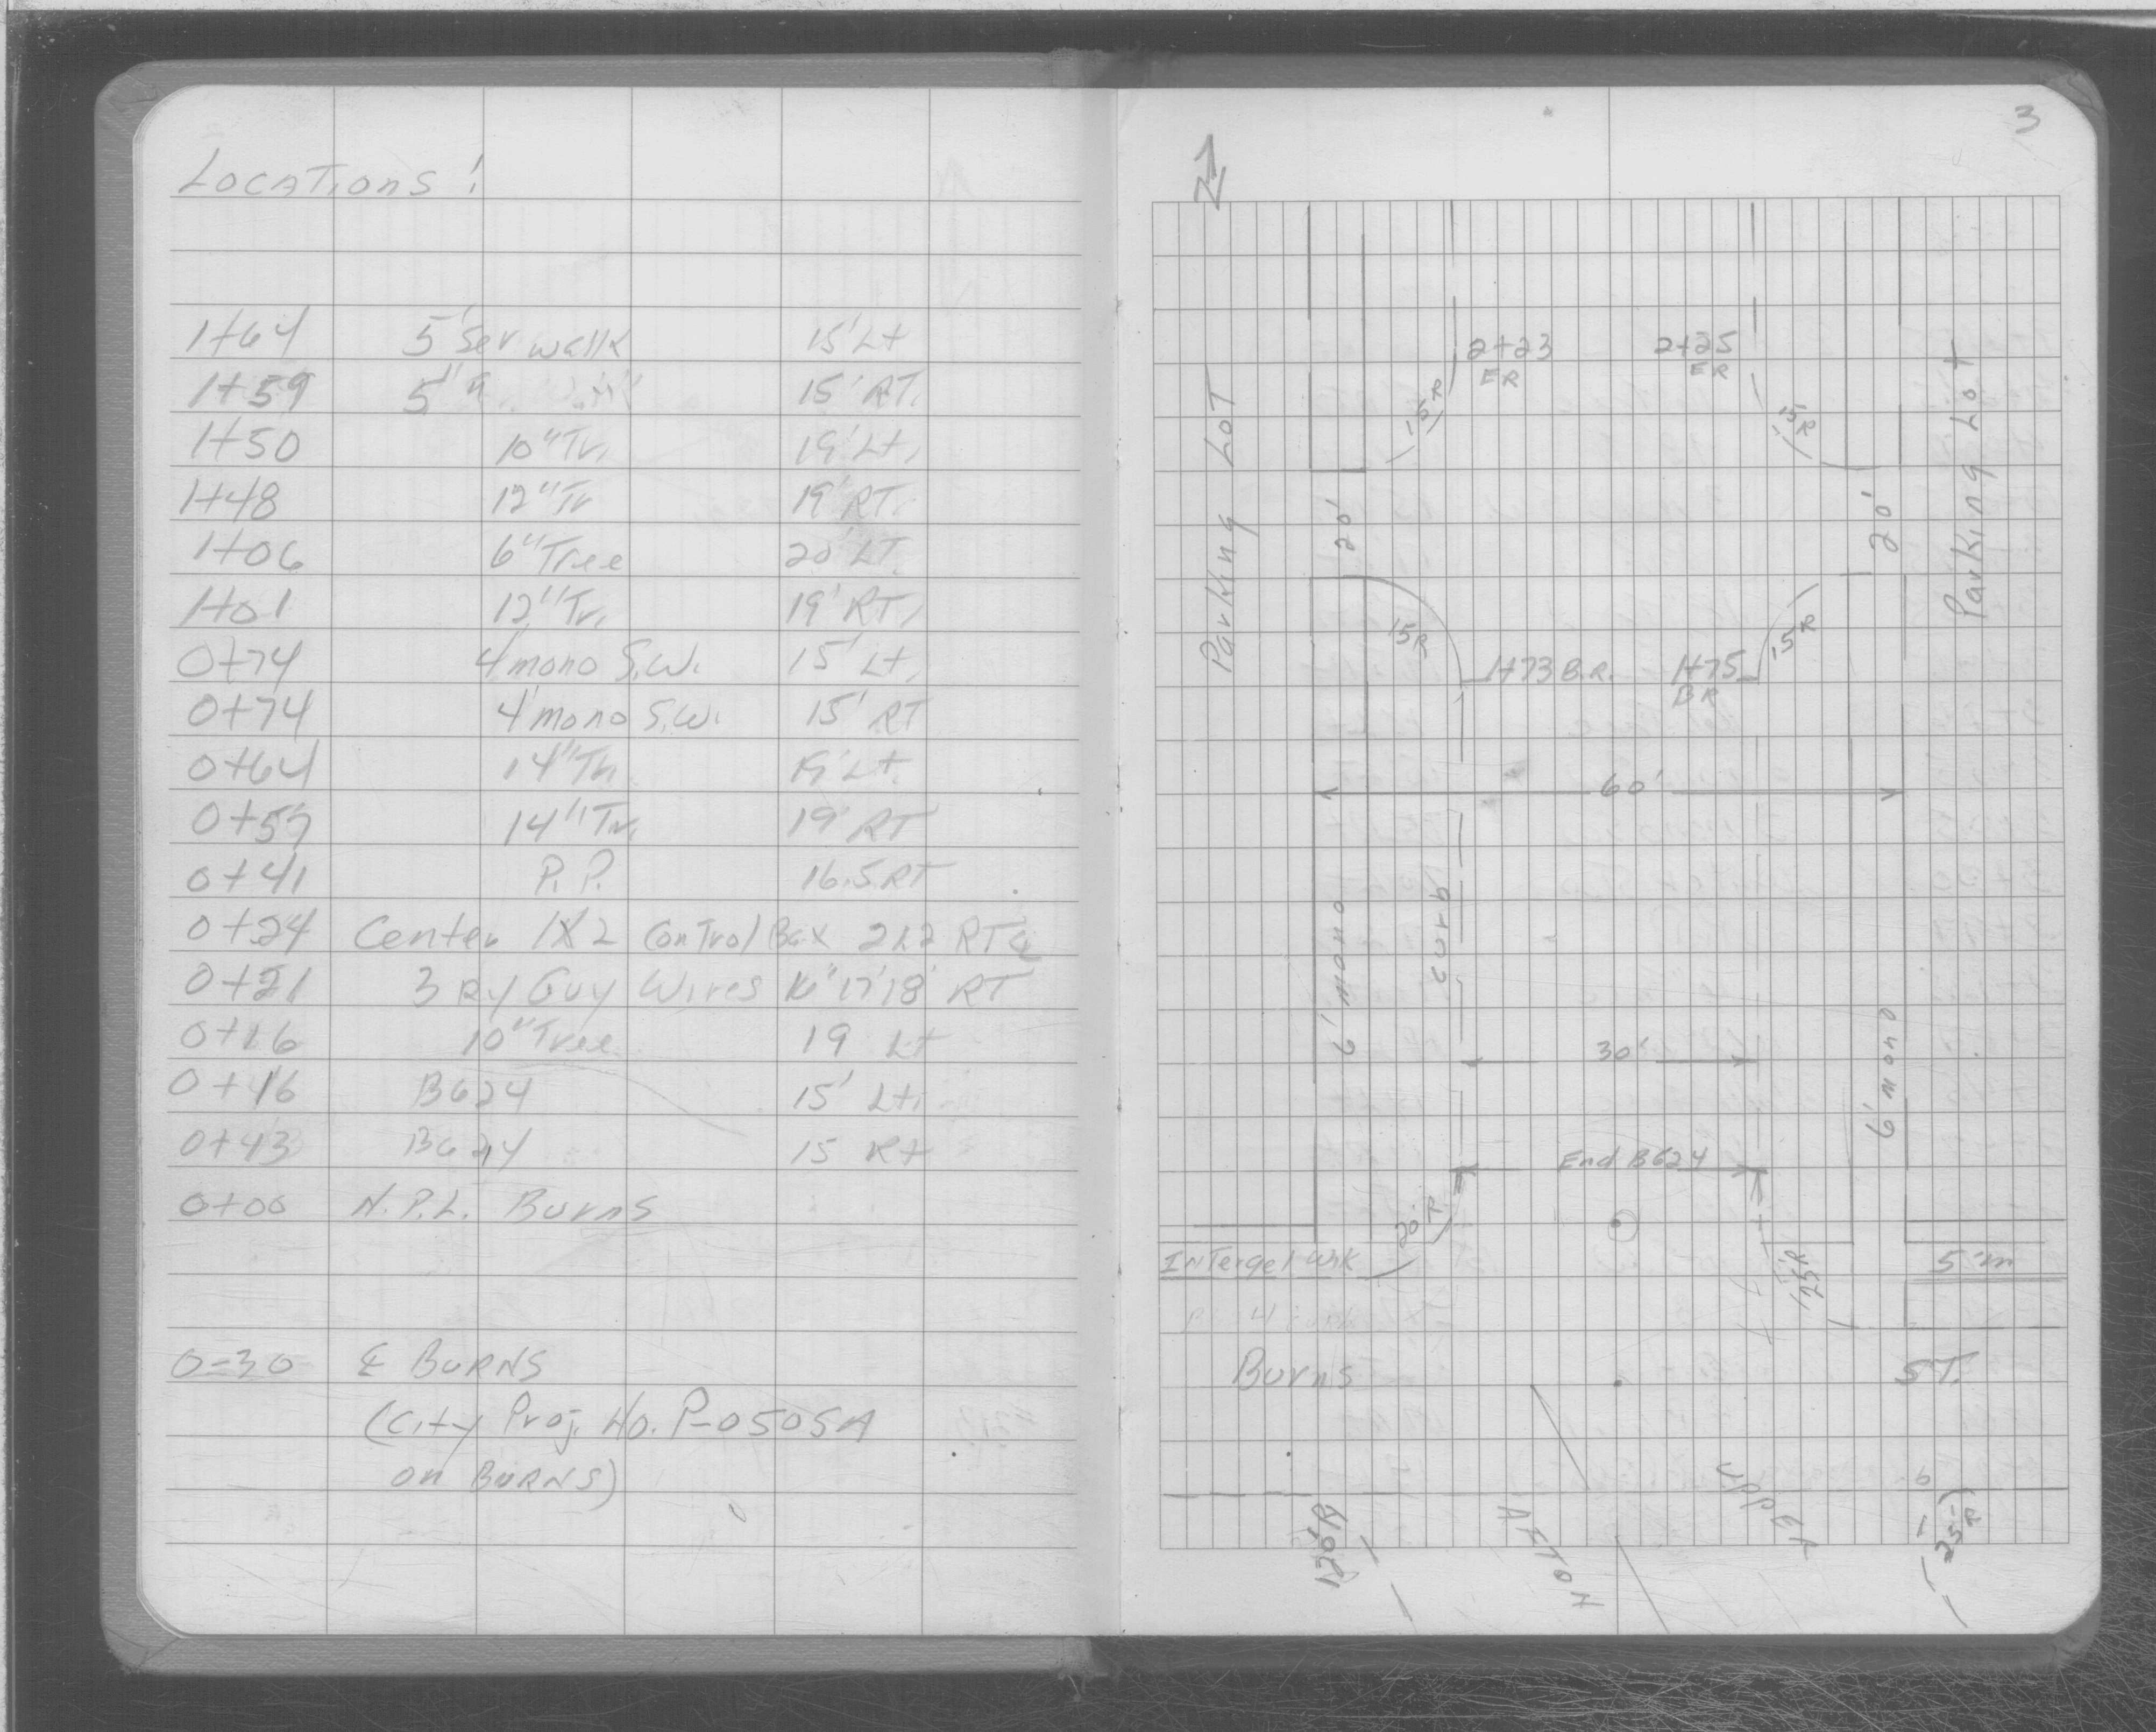 Locations:
1+64 5' Ser walk 15' Lt
1+59 5' " 15' RT.
1+50 10" Tr. 19' Lt.
1+48 12" Tr 19' RT.
1+06 6" Tree 20' LT.
1+01 12" Tr. 19' RT.
0+74 4' mono S.W. 15' Lt.
0+74 4' mono S.W. 15' RT
0+64 14" Tr. 19' Lt.
0+57 14" Tr. 19' RT
0+41 P.P. 16.5 RT
0+24 Center 1X2 Control Box RT ℄
0+21 3 Guy Wires 16' 17' 18' RT
0+16 10" Tree 19 Lt
0+16 B624 15' Lt.
0+43 B624 15 Rt
0+00 N.P.L. Burns
0-30 ℄ BURNS
(City Proj. No. P-0505A
on BURNS)
3
N
2+23 2+25
ER ER
15'R 15'R
Parking Lot Parking Lot
20' 20'
15R 15R
1+73 B.R. 1+75
BR
60'
curb
6' mono
30'
6' mono
End B624
20'R
Intergel Wk 5'm
25'R
Burns ST.
20'R Upper 25'R
AFTON